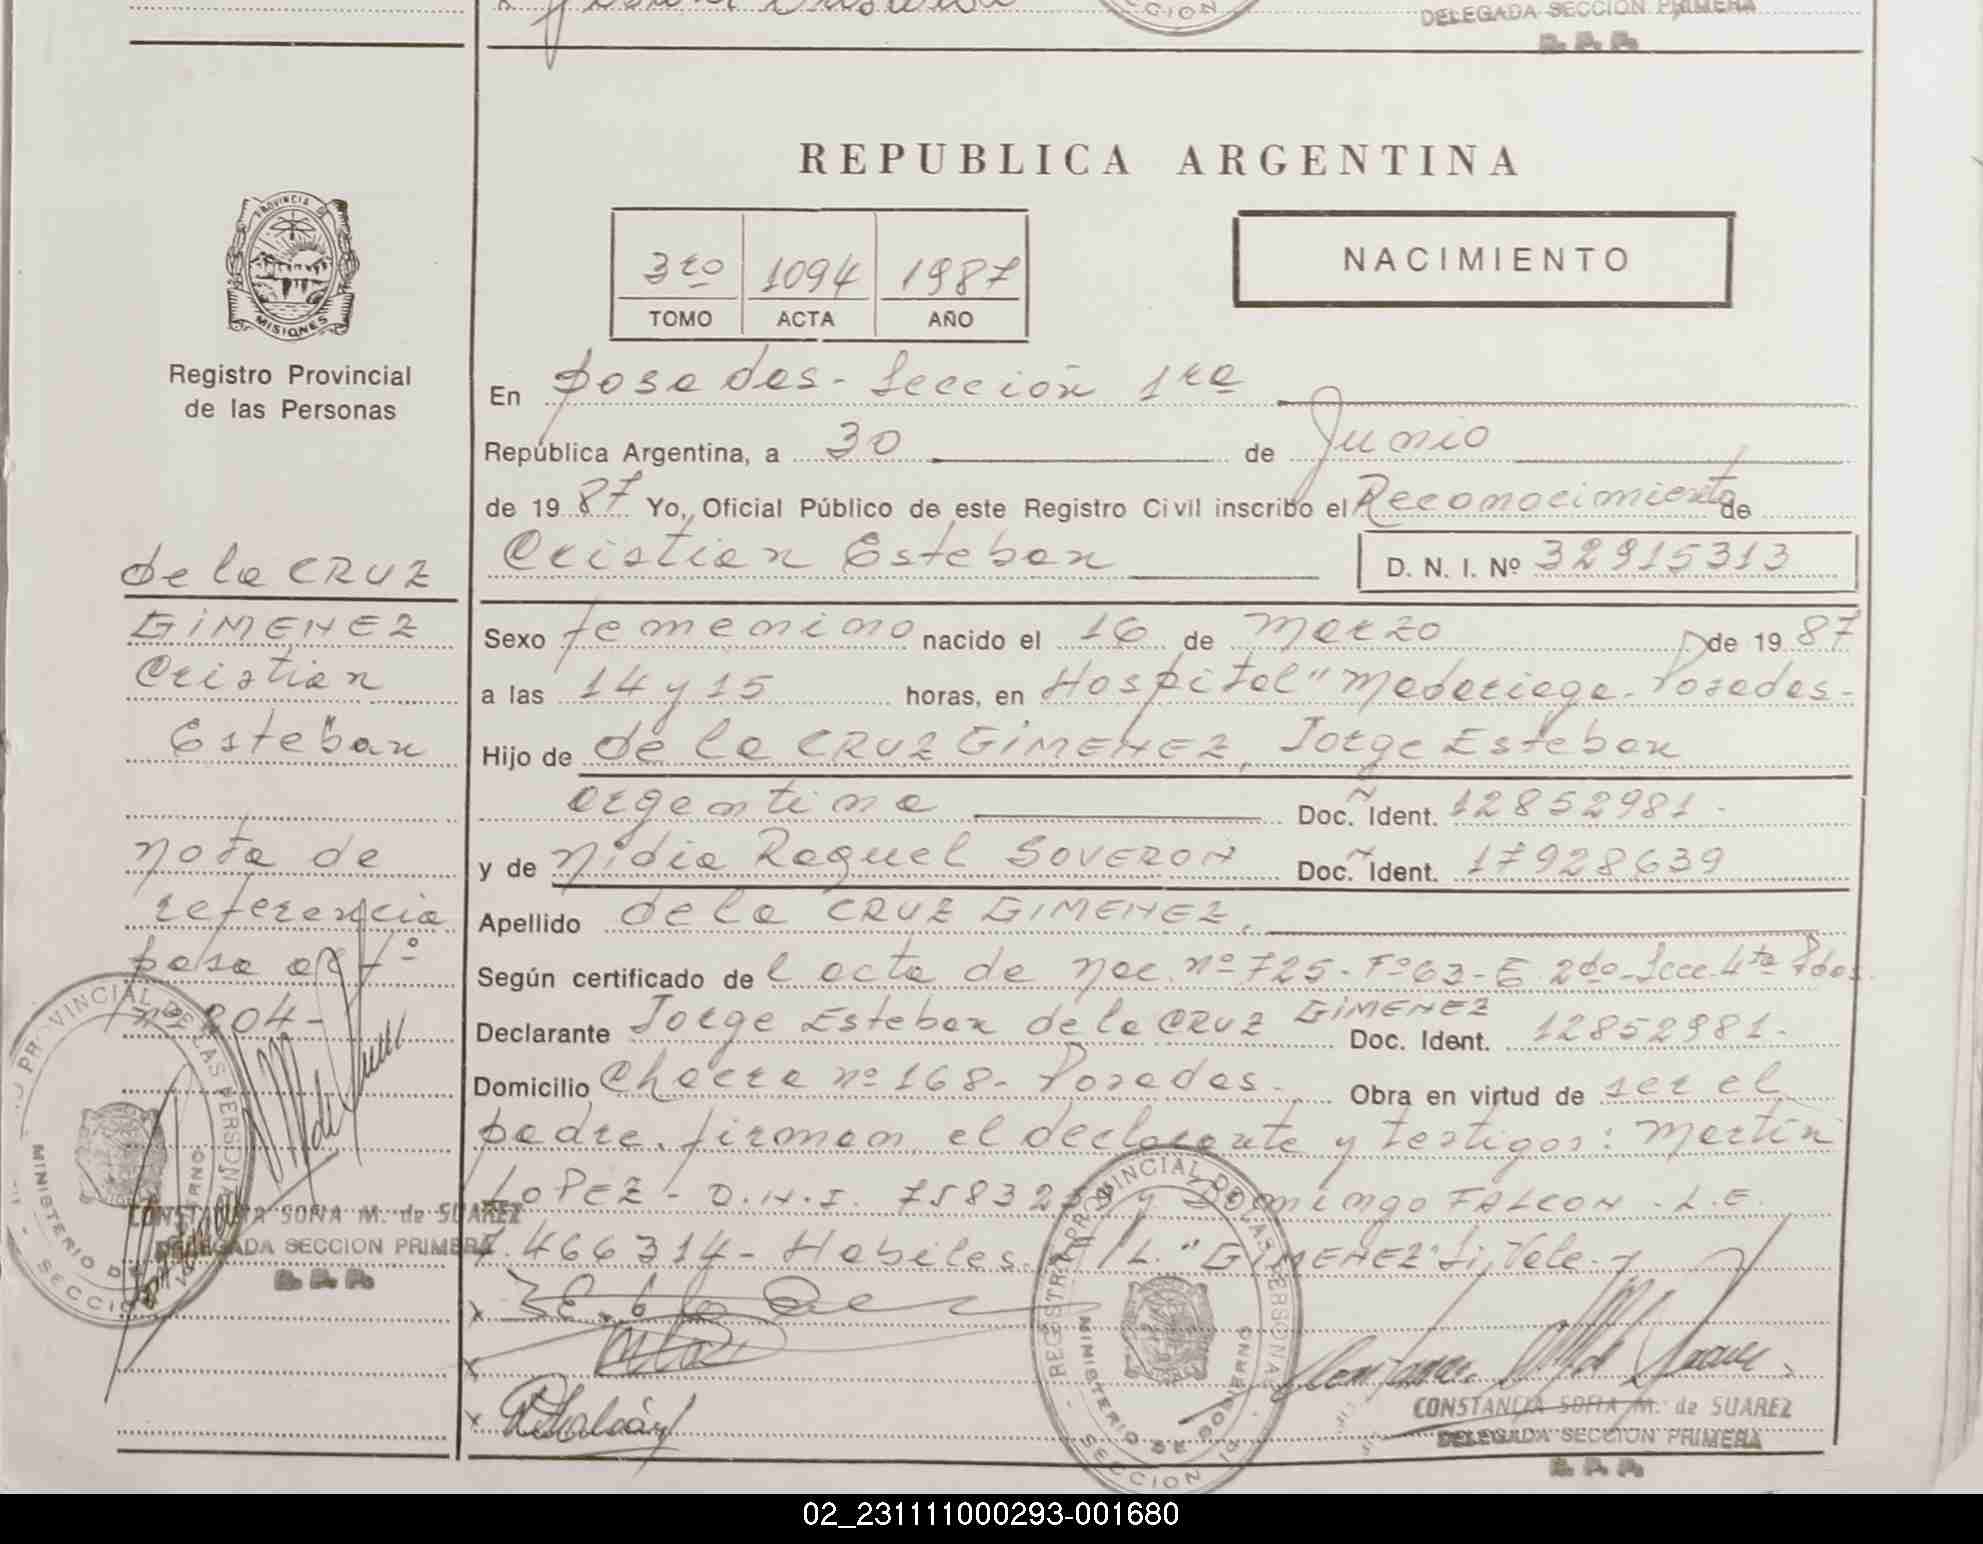 DELEGADA SECCION PRIMERA
R. P. P.
REPUBLICA ARGENTINA
PROVINCIA DE
MISIONES
Registro Provincial
de las Personas
3ro 1094 1987
TOMO ACTA AÑO
NACIMIENTO
En Posadas - Sección 1ra
República Argentina, a 30 de Junio
de 1987 Yo, Oficial Público de este Registro Civil inscribo el Reconocimiento de
Cristian Esteban D. N. I. Nº 32915313
Sexo femenino nacido el 16 de Marzo de 1987
a las 14 y 15 horas, en Hospital "Madariaga - Posadas -
Hijo de de la CRUZ GIMENEZ, Jorge Esteban
argentino Doc. Ident. 12852981 -
y de Nidia Raquel SOVERON Doc. Ident. 17928639
Apellido de la CRUZ GIMENEZ,
Según certificado de l acta de nac. nº 725 - Fº 63 - E 2do - Secc. 4ta Pdas.
Declarante Jorge Esteban de la CRUZ GIMENEZ Doc. Ident. 12852981 -
Domicilio Chacra nº 168 - Posadas - Obra en virtud de ser el
padre, firman el declarante y testigos: Martín
LOPEZ - D.N.I. y Domingo FALCON - L.E.
7.466314 - Habiles. "GIMENEZ" Si, Vale -
de la CRUZ
GIMENEZ
Cristian
Esteban
nota de
referencia
pasa al fº
nº 204 -
REGISTRO PROVINCIAL DE LAS PERSONAS
MINISTERIO DE GOBIERNO
SECCION
CONSTANCIA SOFIA M. de SUAREZ
DELEGADA SECCION PRIMERA
R. P. P.
REGISTRO PROVINCIAL DE LAS PERSONAS
MINISTERIO DE GOBIERNO
SECCION
CONSTANCIA SOFIA M. de SUAREZ
DELEGADA SECCION PRIMERA
R. P. P.
02_231111000293-001680